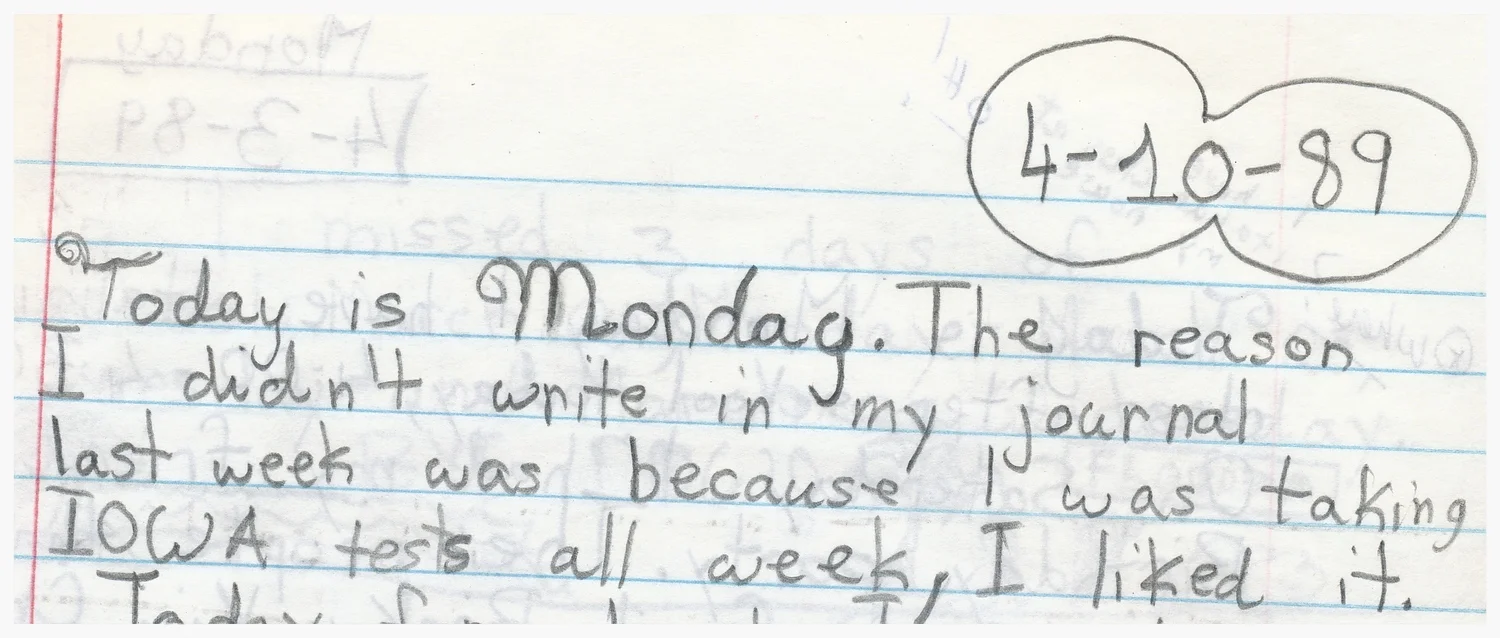 4-10-89
Today is Monday. The reason
I didn't write in my journal
last week was because I was taking
IOWA tests all week, I liked it.
Today